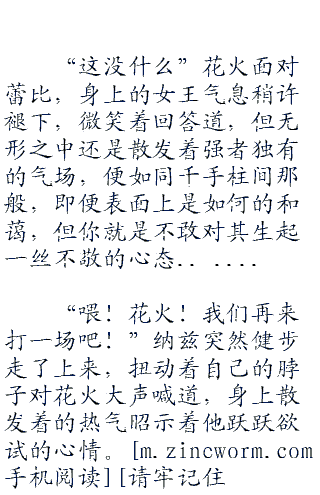 “这没什么”花火面对
蕾比，身上的女王气息稍许
褪下，微笑着回答道，但无
形之中还是散发着强者独有
的气场，便如同千手柱间那
般，即便表面上是如何的和
蔼，但你就是不敢对其生起
一丝不敬的心态.. ....
“喂！花火！我们再来
打一场吧！”纳兹突然健步
走了上来，扭动着自己的脖
子对花火大声喊道，身上散
发着的热气昭示着他跃跃欲
试的心情。[m.zincworm.com
手机阅读][请牢记住